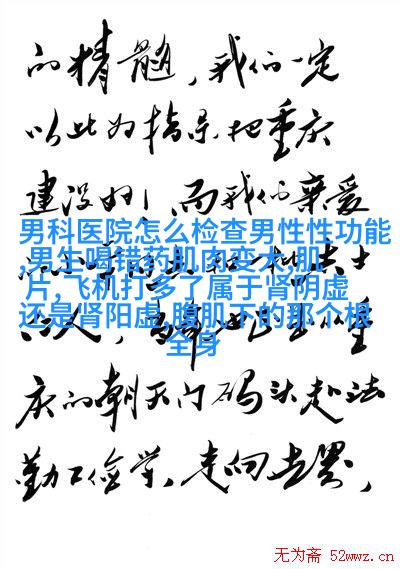 的精髓，我们一定
以此为指导把重庆
建设好！而我们亲爱
男科医院怎么检查男性性功能
,男生喝错药肌肉变大,肌
片,飞机打多了属于肾阴虚
还是肾阳虚,腹肌下的那个根
全身
庆的朝天门码头赴法
勤工俭学，走向世界，
无为斋 52wwz.cn